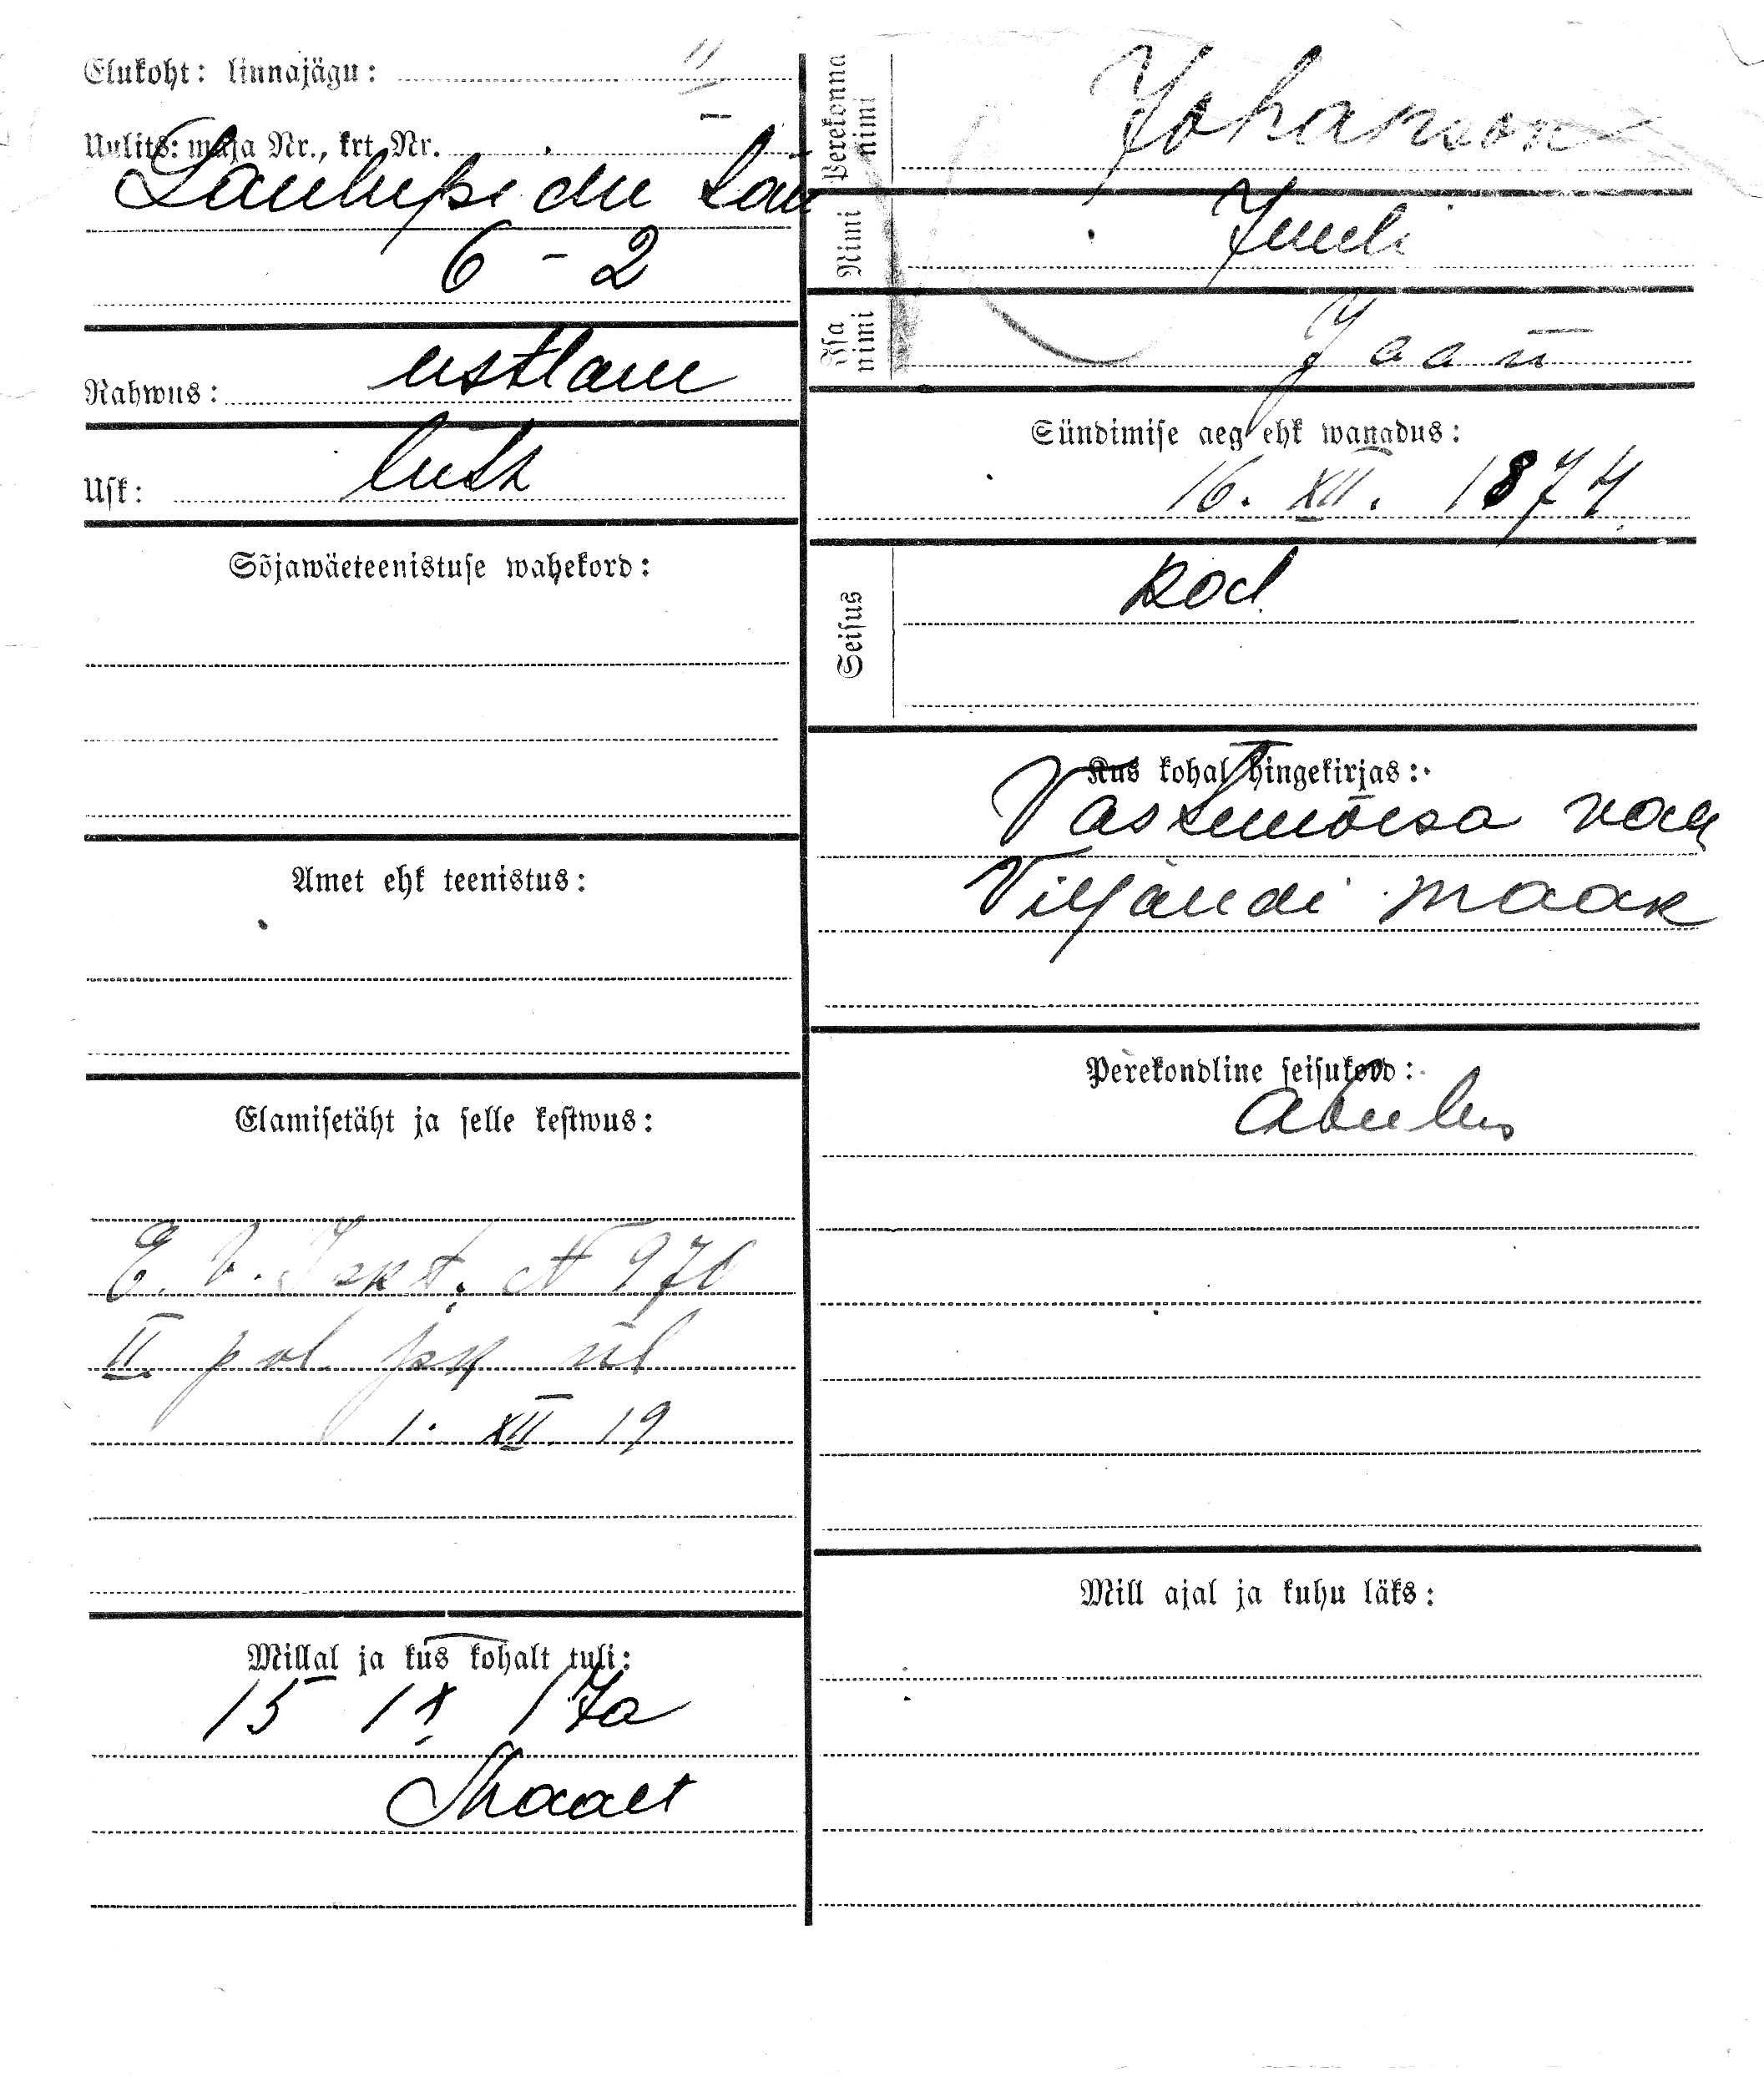 Elukoht: linnajägu: II
Uulits: maja Nr., krt. Nr.
Laulupidu tän
6 - 2
Rahwus: eestlane
Usk: luth
Sõjawäeteenistuse wahekord:
Amet ehk teenistus:
Elamisetäht ja selle kestwus:
E. V. Isikt. N 970
II pol. jsk ül
1. XII. 19
Millal ja kus kohalt tuli:
15 IX 17a
Maalt
Perekonna nimi Johanson
Nimi Juuli
Isa nimi Jaan
Sündimise aeg ehk wanadus:
16. XII. 1874
Seisus kod.
Kus kohal hingekirjas:
Vastemõisa vald
Viljandi maak
Perekondline seisukord:
abielus
Mill ajal ja kuhu läks: